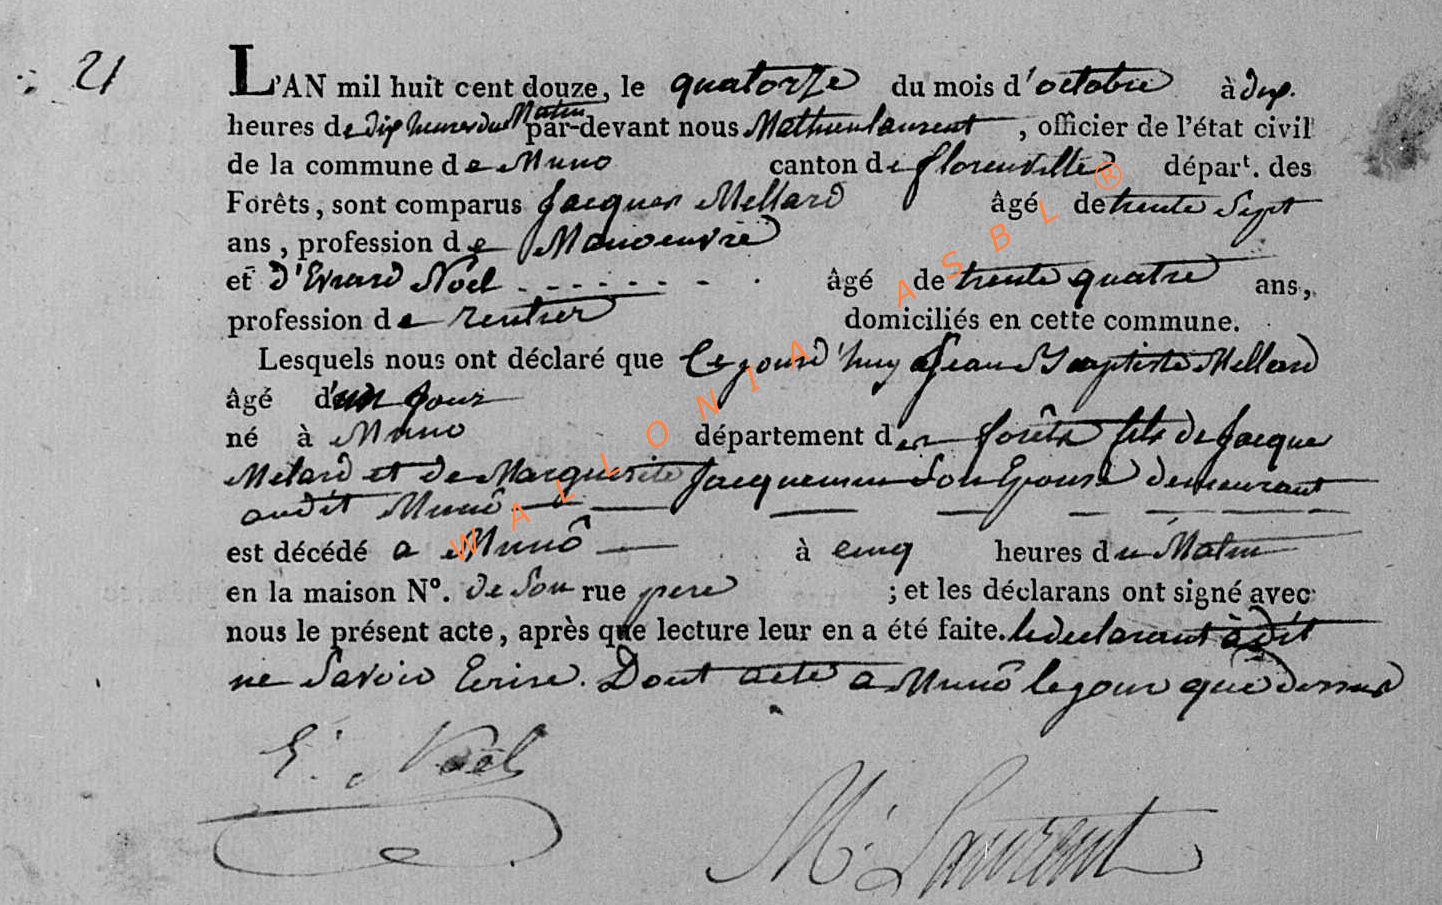 21
L'AN mil huit cent douze, le quatorze du mois d'octobre à dix
heures de dix heures du Matin par-devant nous Mathieu laurent, officier de l'état civil
de la commune de Muno canton de florenville départ. des
Forêts, sont comparus Jacques Mellard âgé de trente Sept
ans, profession de Manoeuvre
et d'Evrard Noël - - - - - - - - âgé de trente quatre ans,
profession de rentier domiciliés en cette commune.
Lesquels nous ont déclaré que Cejourd'huy Jean Baptiste Mellard
âgé d'un jour
né à Muno département des forêts fils de Jacque
Melard et de Marguerite Jacquemin Son Epouse demeurant
audit Munô
est décédé a Munô à cinq heures du Matin
en la maison N°. de Son rue pere ; et les déclarans ont signé avec
nous le présent acte, après que lecture leur en a été faite. le declarant à dit
ne Savoir Ecrire. Dont acte a Munô le jour que dessus
E. Noël
M. Laurent
WALLONIA ASBL ®